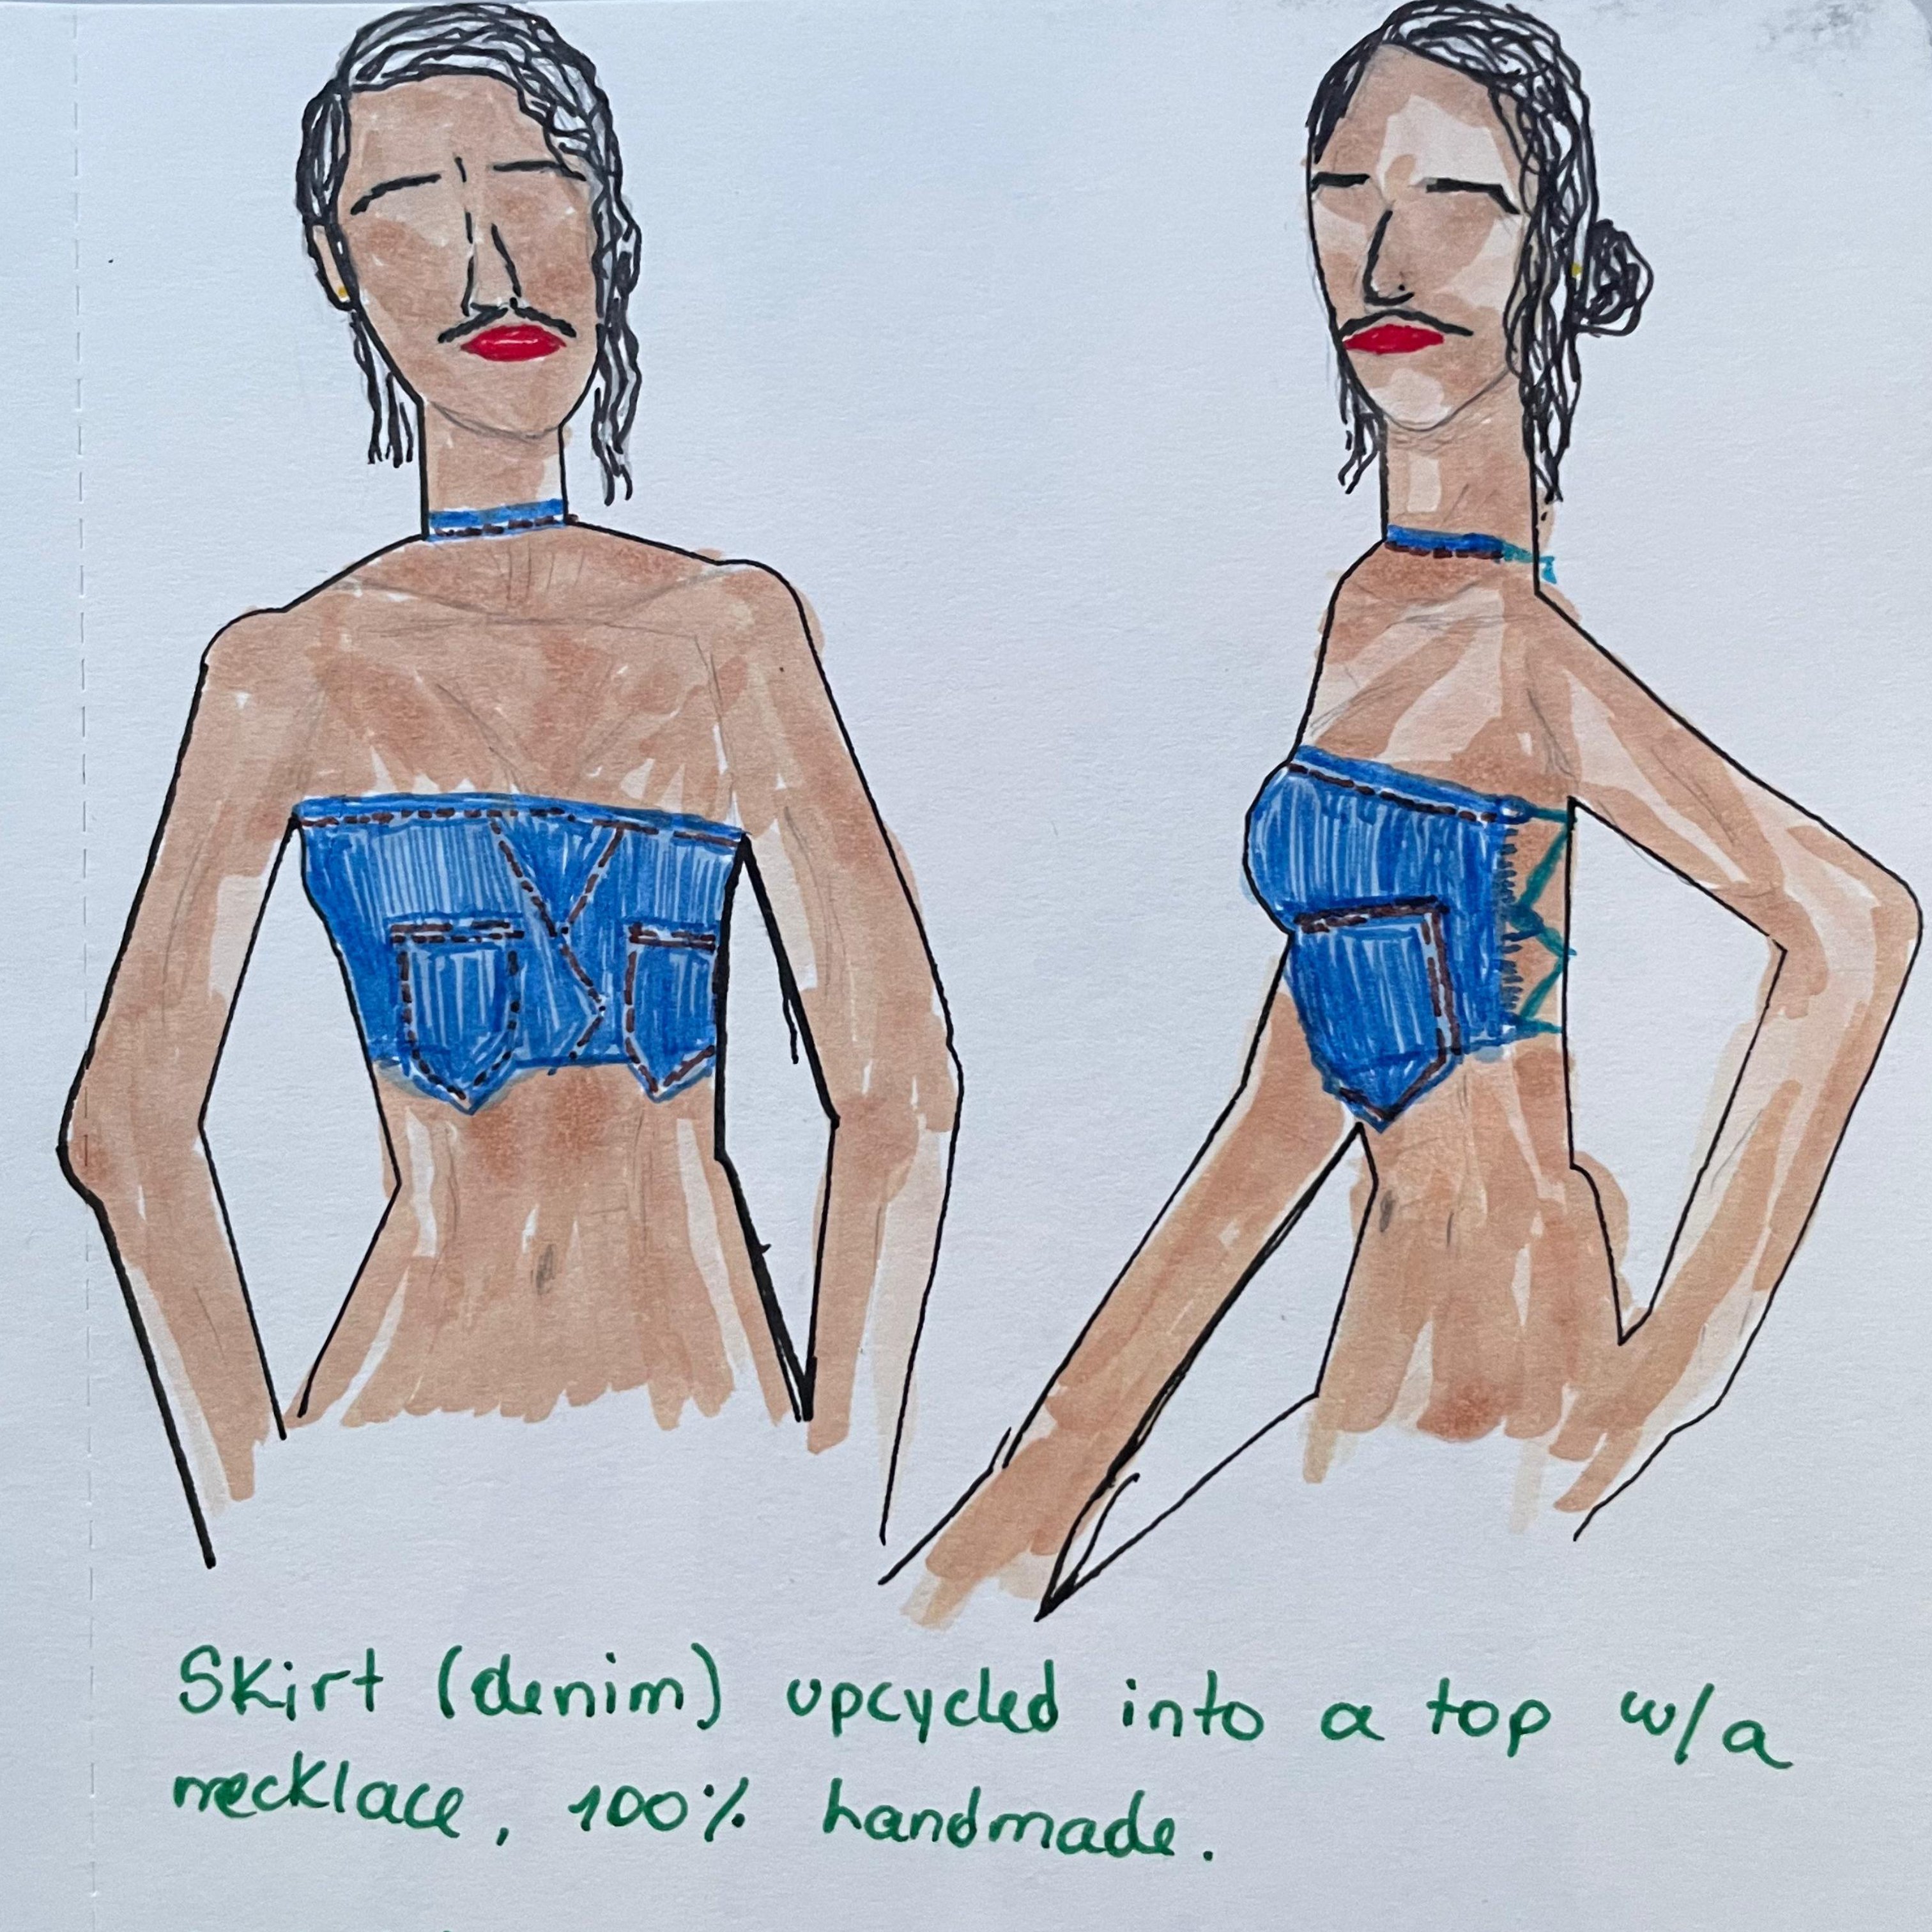 Skirt (denim) upcycled into a top w/a
necklace, 100% handmade.